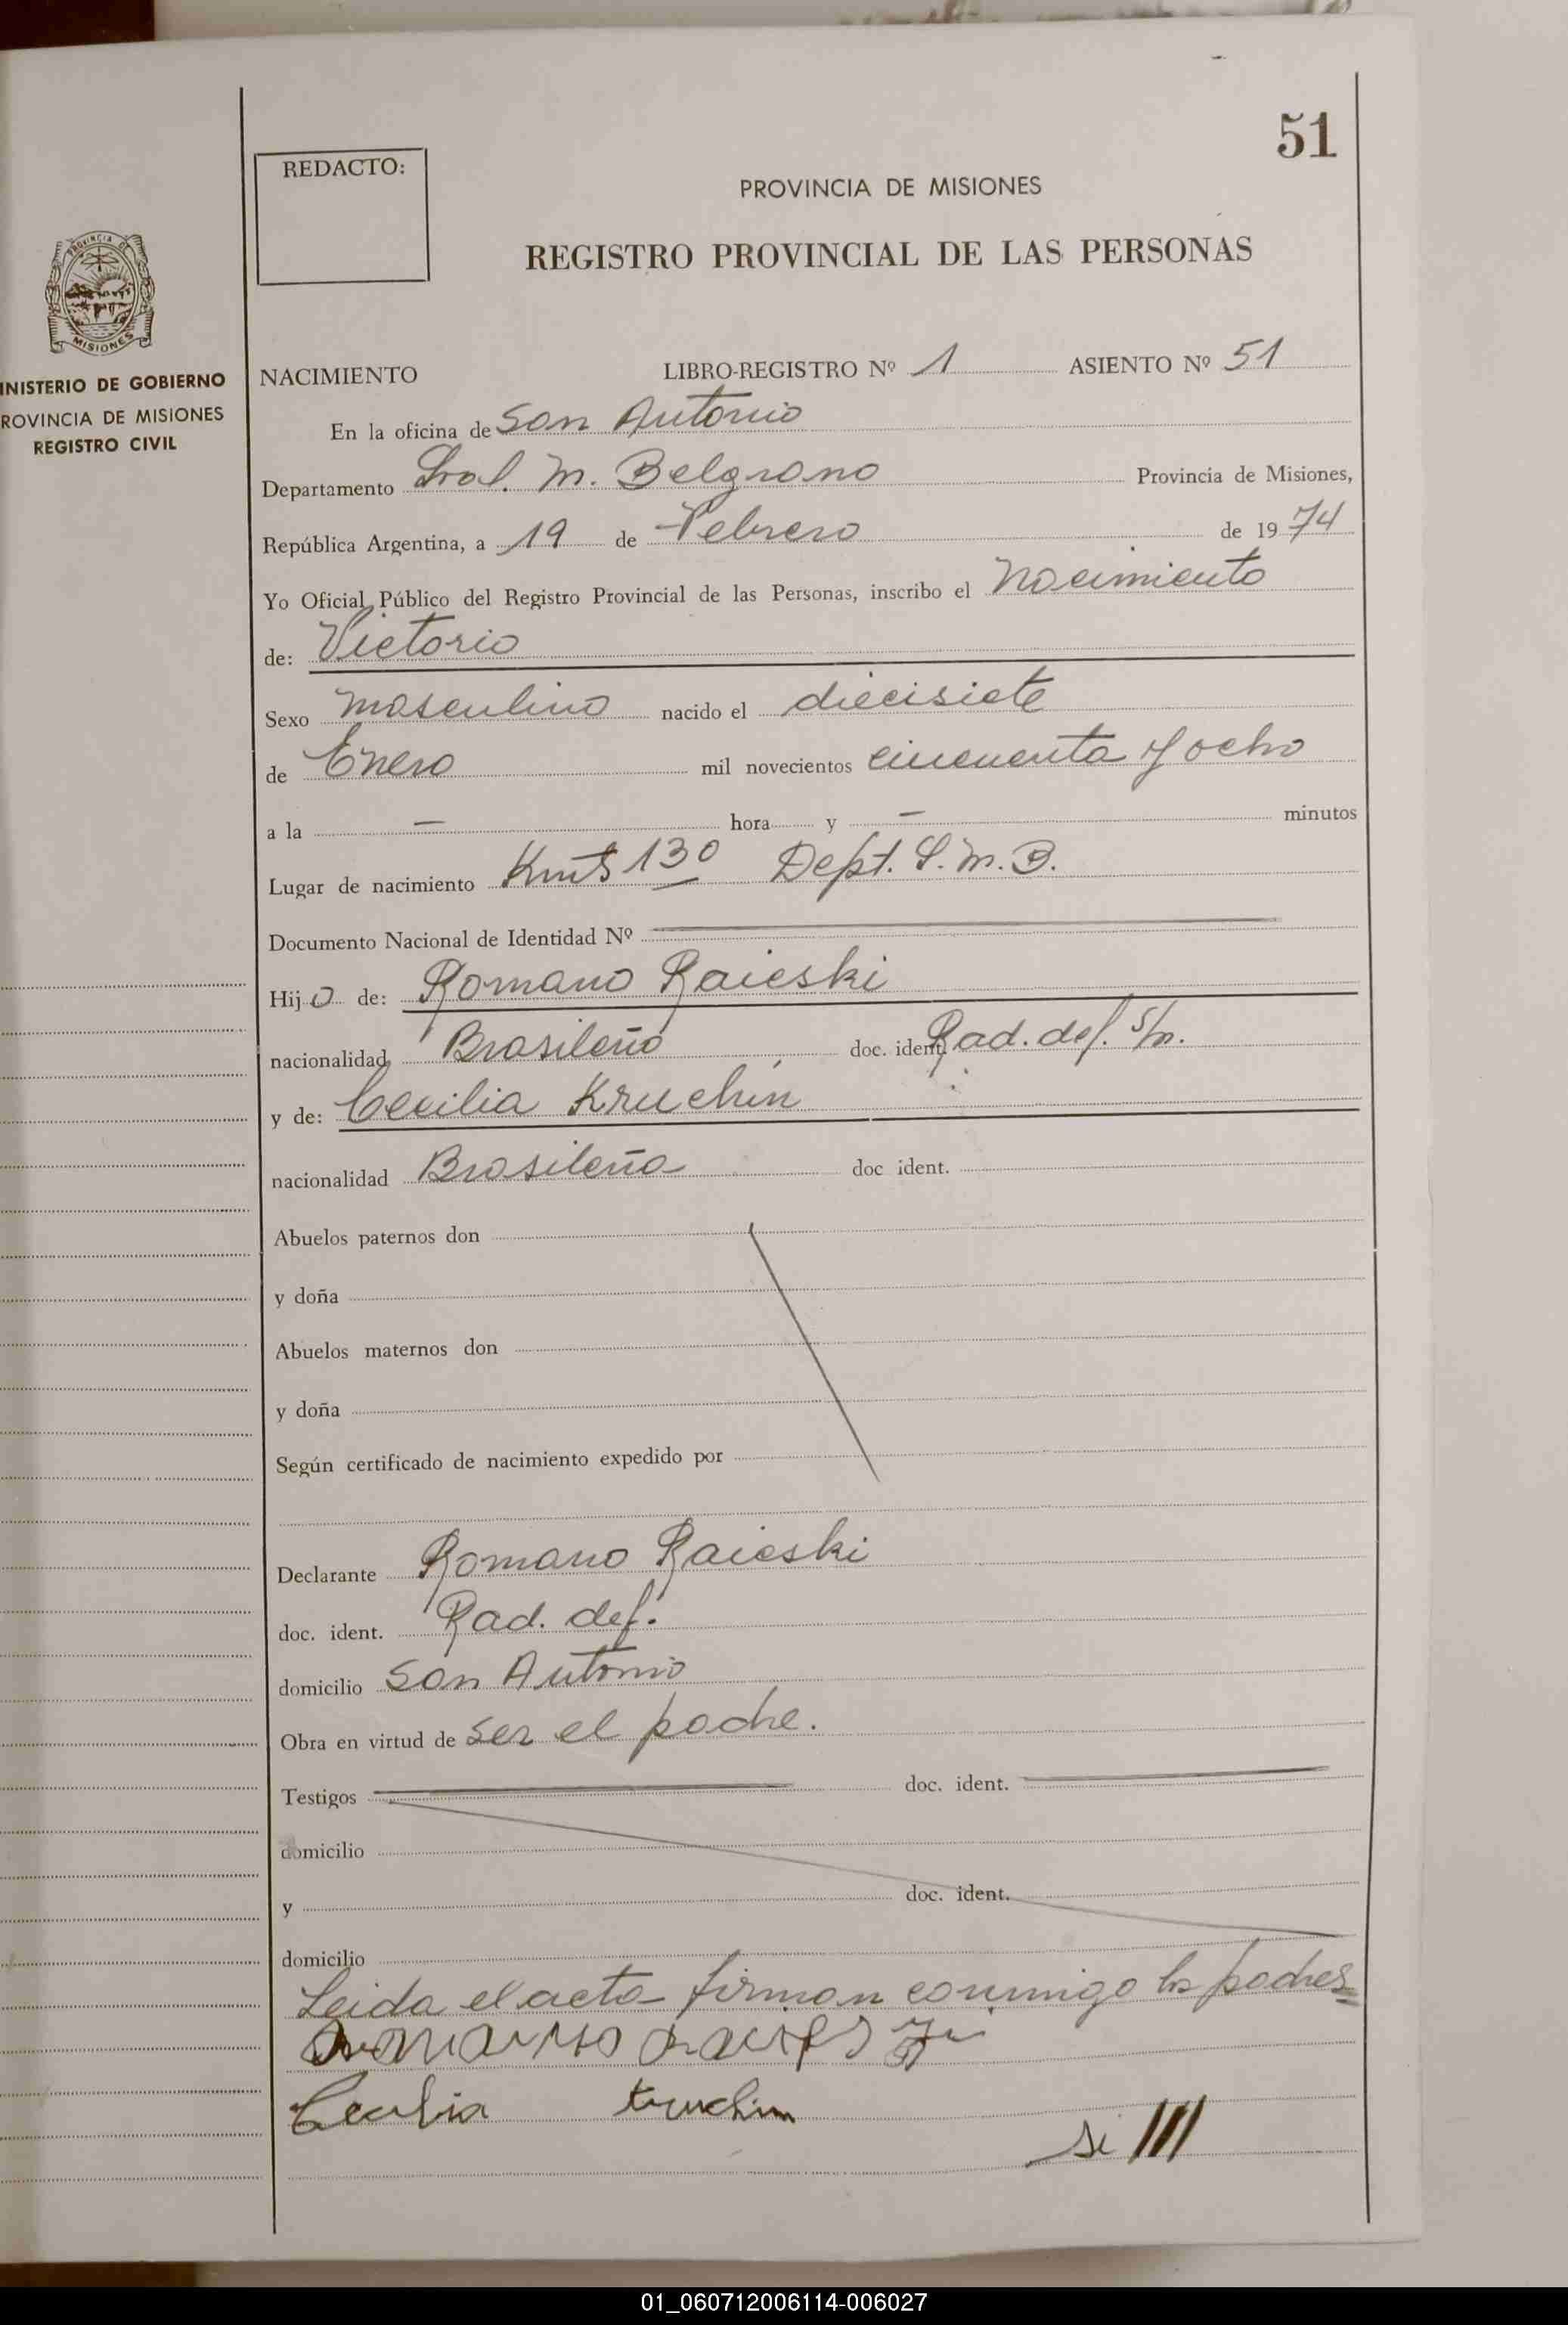 51
REDACTO:
PROVINCIA DE MISIONES
REGISTRO PROVINCIAL DE LAS PERSONAS
PROVINCIA DE
MISIONES
INISTERIO DE GOBIERNO
ROVINCIA DE MISIONES
REGISTRO CIVIL
NACIMIENTO LIBRO-REGISTRO Nº 1 ASIENTO Nº 51
En la oficina de San Antonio
Departamento Gral. M. Belgrano Provincia de Misiones,
República Argentina, a 19 de Febrero de 1974
Yo Oficial Público del Registro Provincial de las Personas, inscribo el Nacimiento
de: Victorio
Sexo masculino nacido el diecisiete
de Enero mil novecientos cincuenta y ocho
a la — hora y — minutos
Lugar de nacimiento Kmts 130 Dept. G. M. B.
Documento Nacional de Identidad Nº
Hijo de: Romano Raieski
nacionalidad Brasileño doc. ident. Rad. def. s/n.
y de: Cecilia Kruchin
nacionalidad Brasileña doc ident.
Abuelos paternos don
y doña
Abuelos maternos don
y doña
Según certificado de nacimiento expedido por
Declarante Romano Raieski
doc. ident. Rad. def.
domicilio San Antonio
Obra en virtud de ser el padre.
Testigos doc. ident.
domicilio
y doc. ident.
domicilio
Leida el acta firman conmigo los padres
Cecilia kruchin
01_060712006114-006027